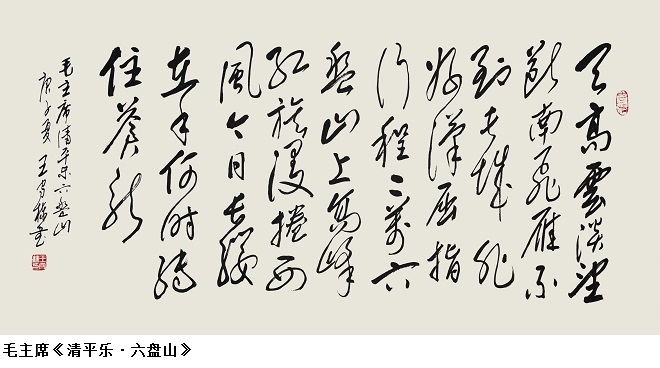 天高雲淡望
断南飛雁不
到长城非
好漢屈指
行程二萬六
盤山上高峰
红旗漫捲西
風今日长缨
在手何时缚
住蒼龙
毛主席清平乐六盤山
庚子夏 王
毛主席《清平乐·六盘山》